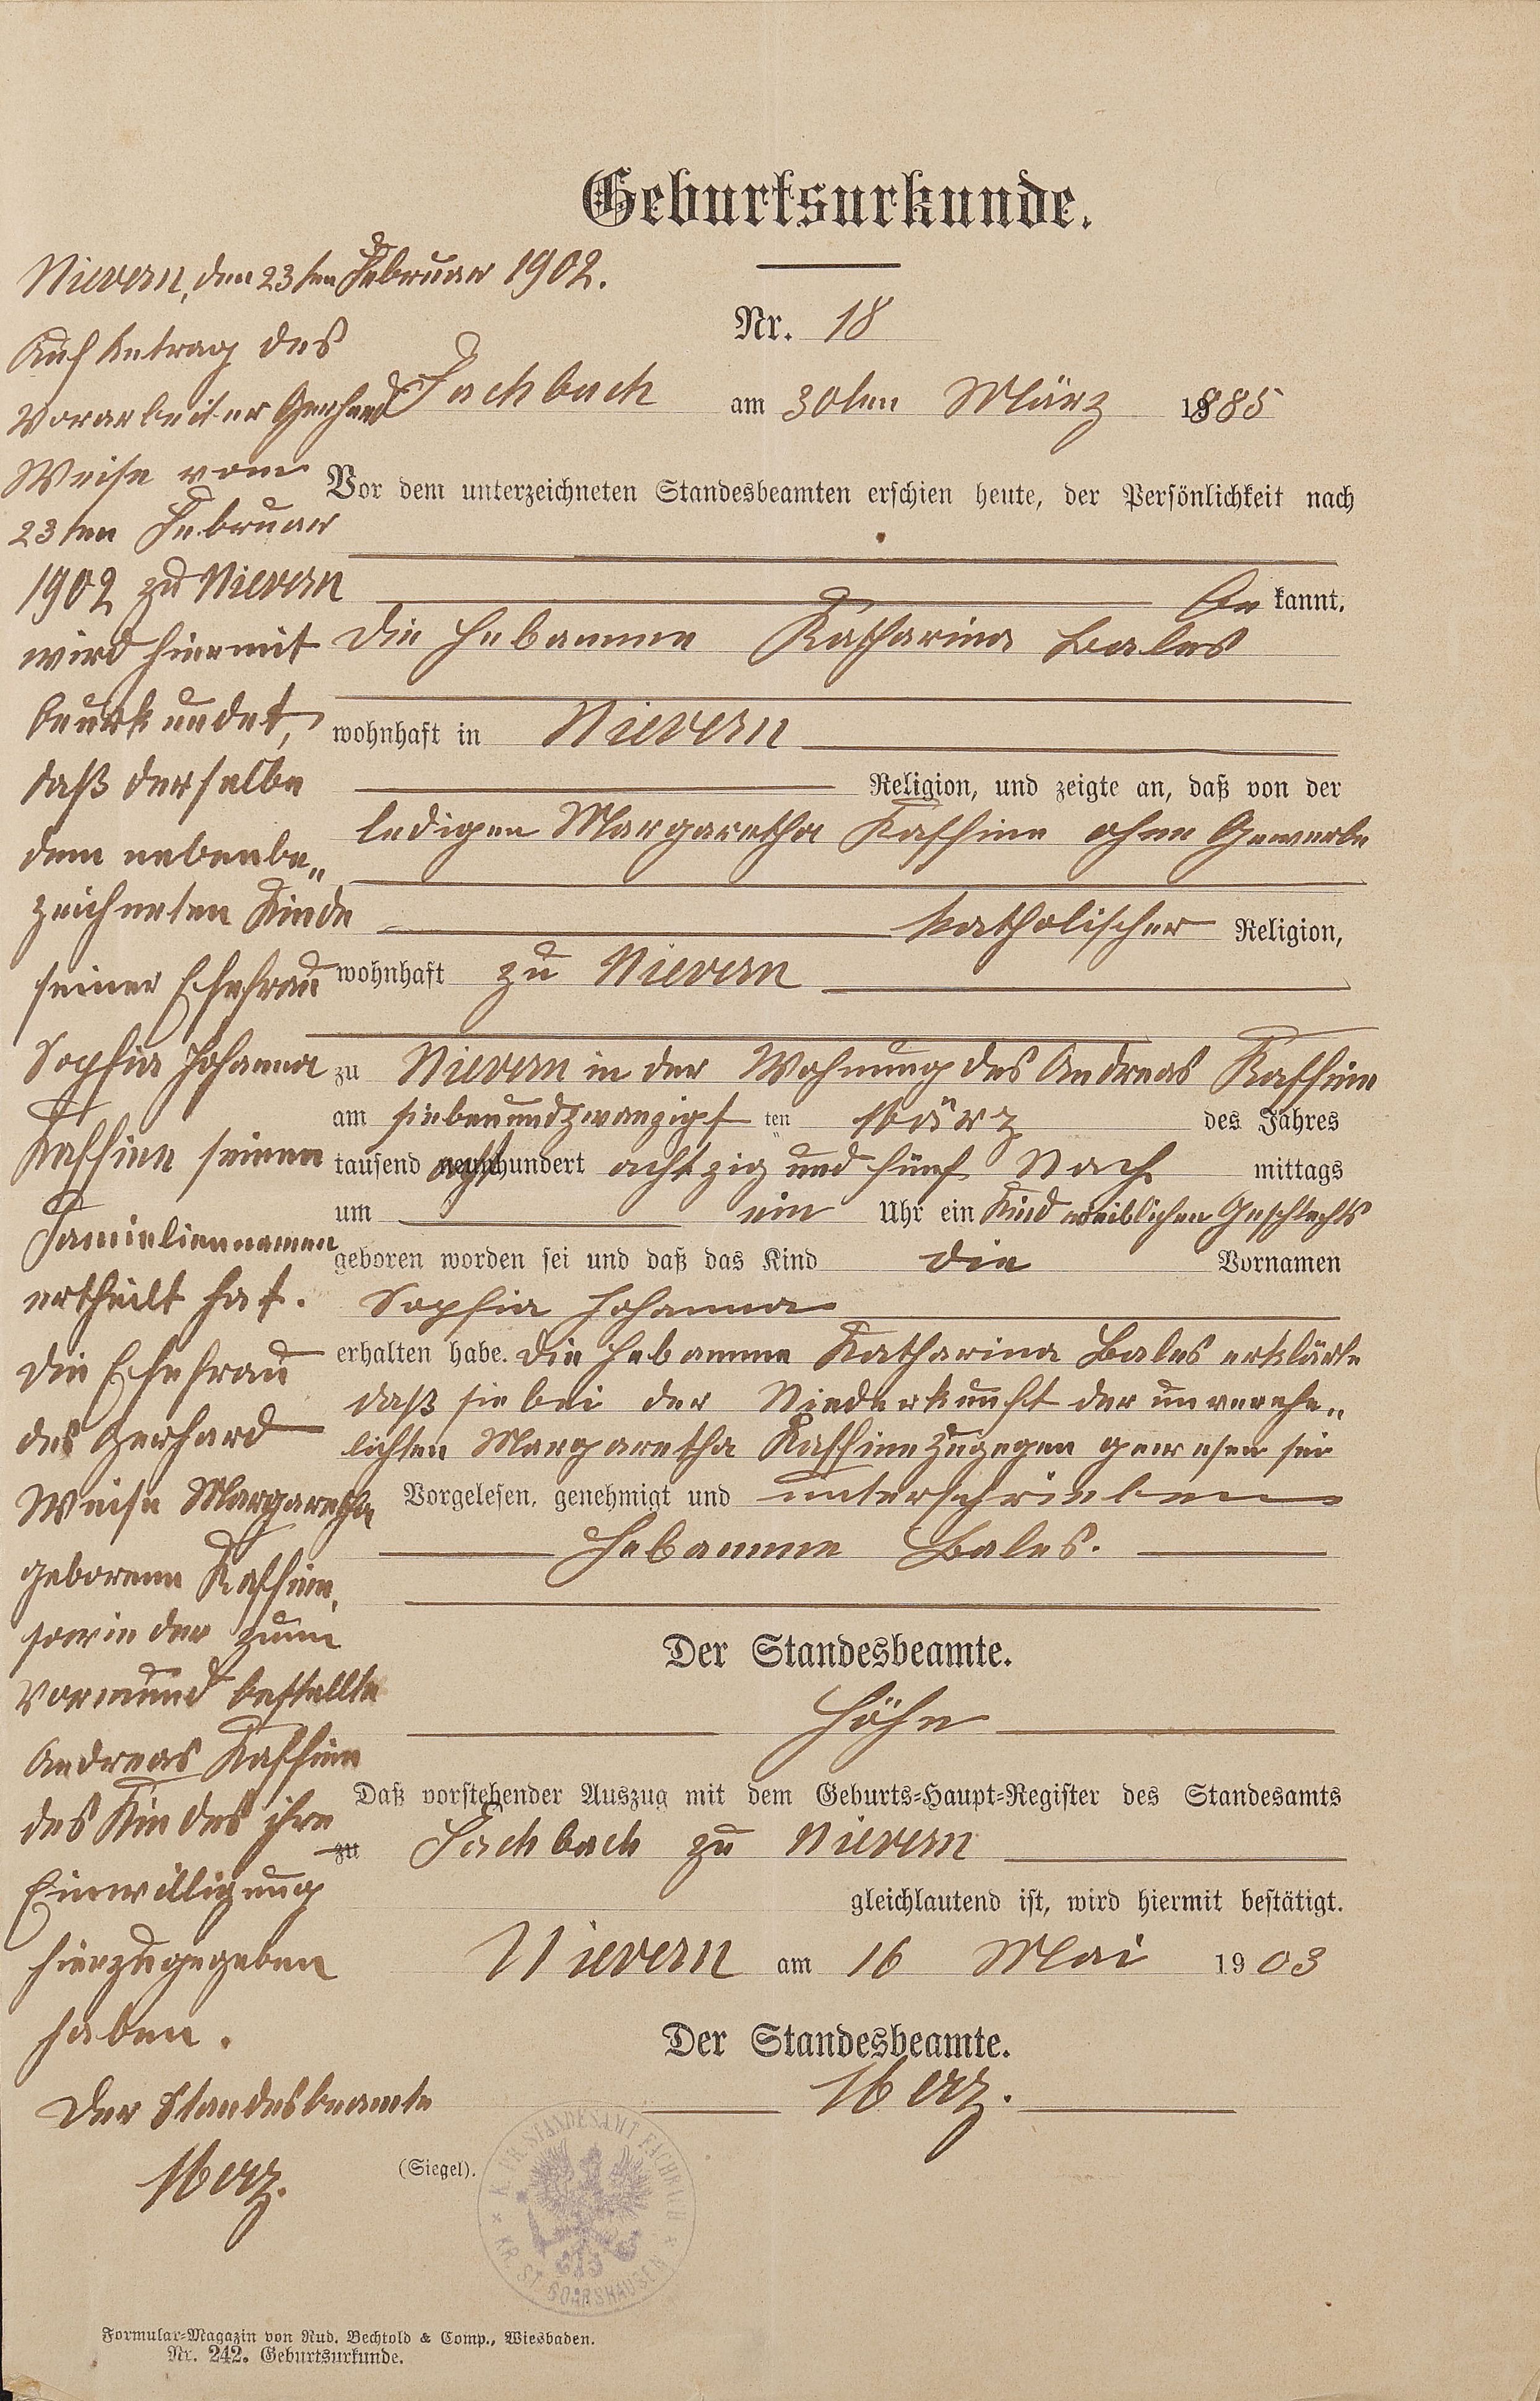 Geburtsurkunde.
Nr. 18
Fachbach am 30ten März 1885
Vor dem unterzeichneten Standesbeamten erschien heute, der Persönlichkeit nach
be kannt,
die Hebamme Katharina Bales
wohnhaft in Nievern
Religion, und zeigte an, daß von der
ledigen Margaretha Kaffine ohne Gewerbe
katholischer Religion,
wohnhaft zu Nievern
zu Nievern in der Wohnung des Andreas Kaffine
am siebenundzwanzigst ten März des Jahres
tausend achthundert achtzig und fünf Nach mittags
um ein Uhr ein Kind weiblichen Geschlechts
geboren worden sei und daß das Kind die Vornamen
Sophia Johanna
erhalten habe. Die Hebamme Katharina Bales erklärte
daß sie bei der Niederkunft der unverehe„
lichten Margaretha Kaffine zugegen gewesen sei
Vorgelesen, genehmigt und unterschrieben
Hebamme Bales.
Der Standesbeamte.
Höhn
Daß vorstehender Auszug mit dem Geburts-Haupt-Register des Standesamts
zu Fachbach zu Nievern
gleichlautend ist, wird hiermit bestätigt.
Nievern am 16 Mai 1903
Der Standesbeamte.
Merz.
(Siegel).
K. PR. STANDESAMT FACHBACH
KR. ST. GOARSHAUSEN
Nievern, den 23ten Februar 1902.
Auf Antrag des
Vorarbeiter Gerhard
Weise vom
23ten Februar
1902 zu Nievern
wird hiermit
beurkundet,
daß derselbe
dem nebenbe„
zeichneten Kinde
seiner Ehefrau
Sophia Johanna
Kaffine seinen
Familiennamen
ertheilt hat.
Die Ehefrau
des Gerhard
Weise Margaretha
geborene Kaffine,
sowie der zum
Vormund bestellte
Andreas Kaffine
des Kindes ihre
Einwilligung
hierzu gegeben
haben.
Der Standesbeamte
Merz.
Formular-Magazin von Rud. Bechtold & Comp., Wiesbaden.
Nr. 242. Geburtsurkunde.